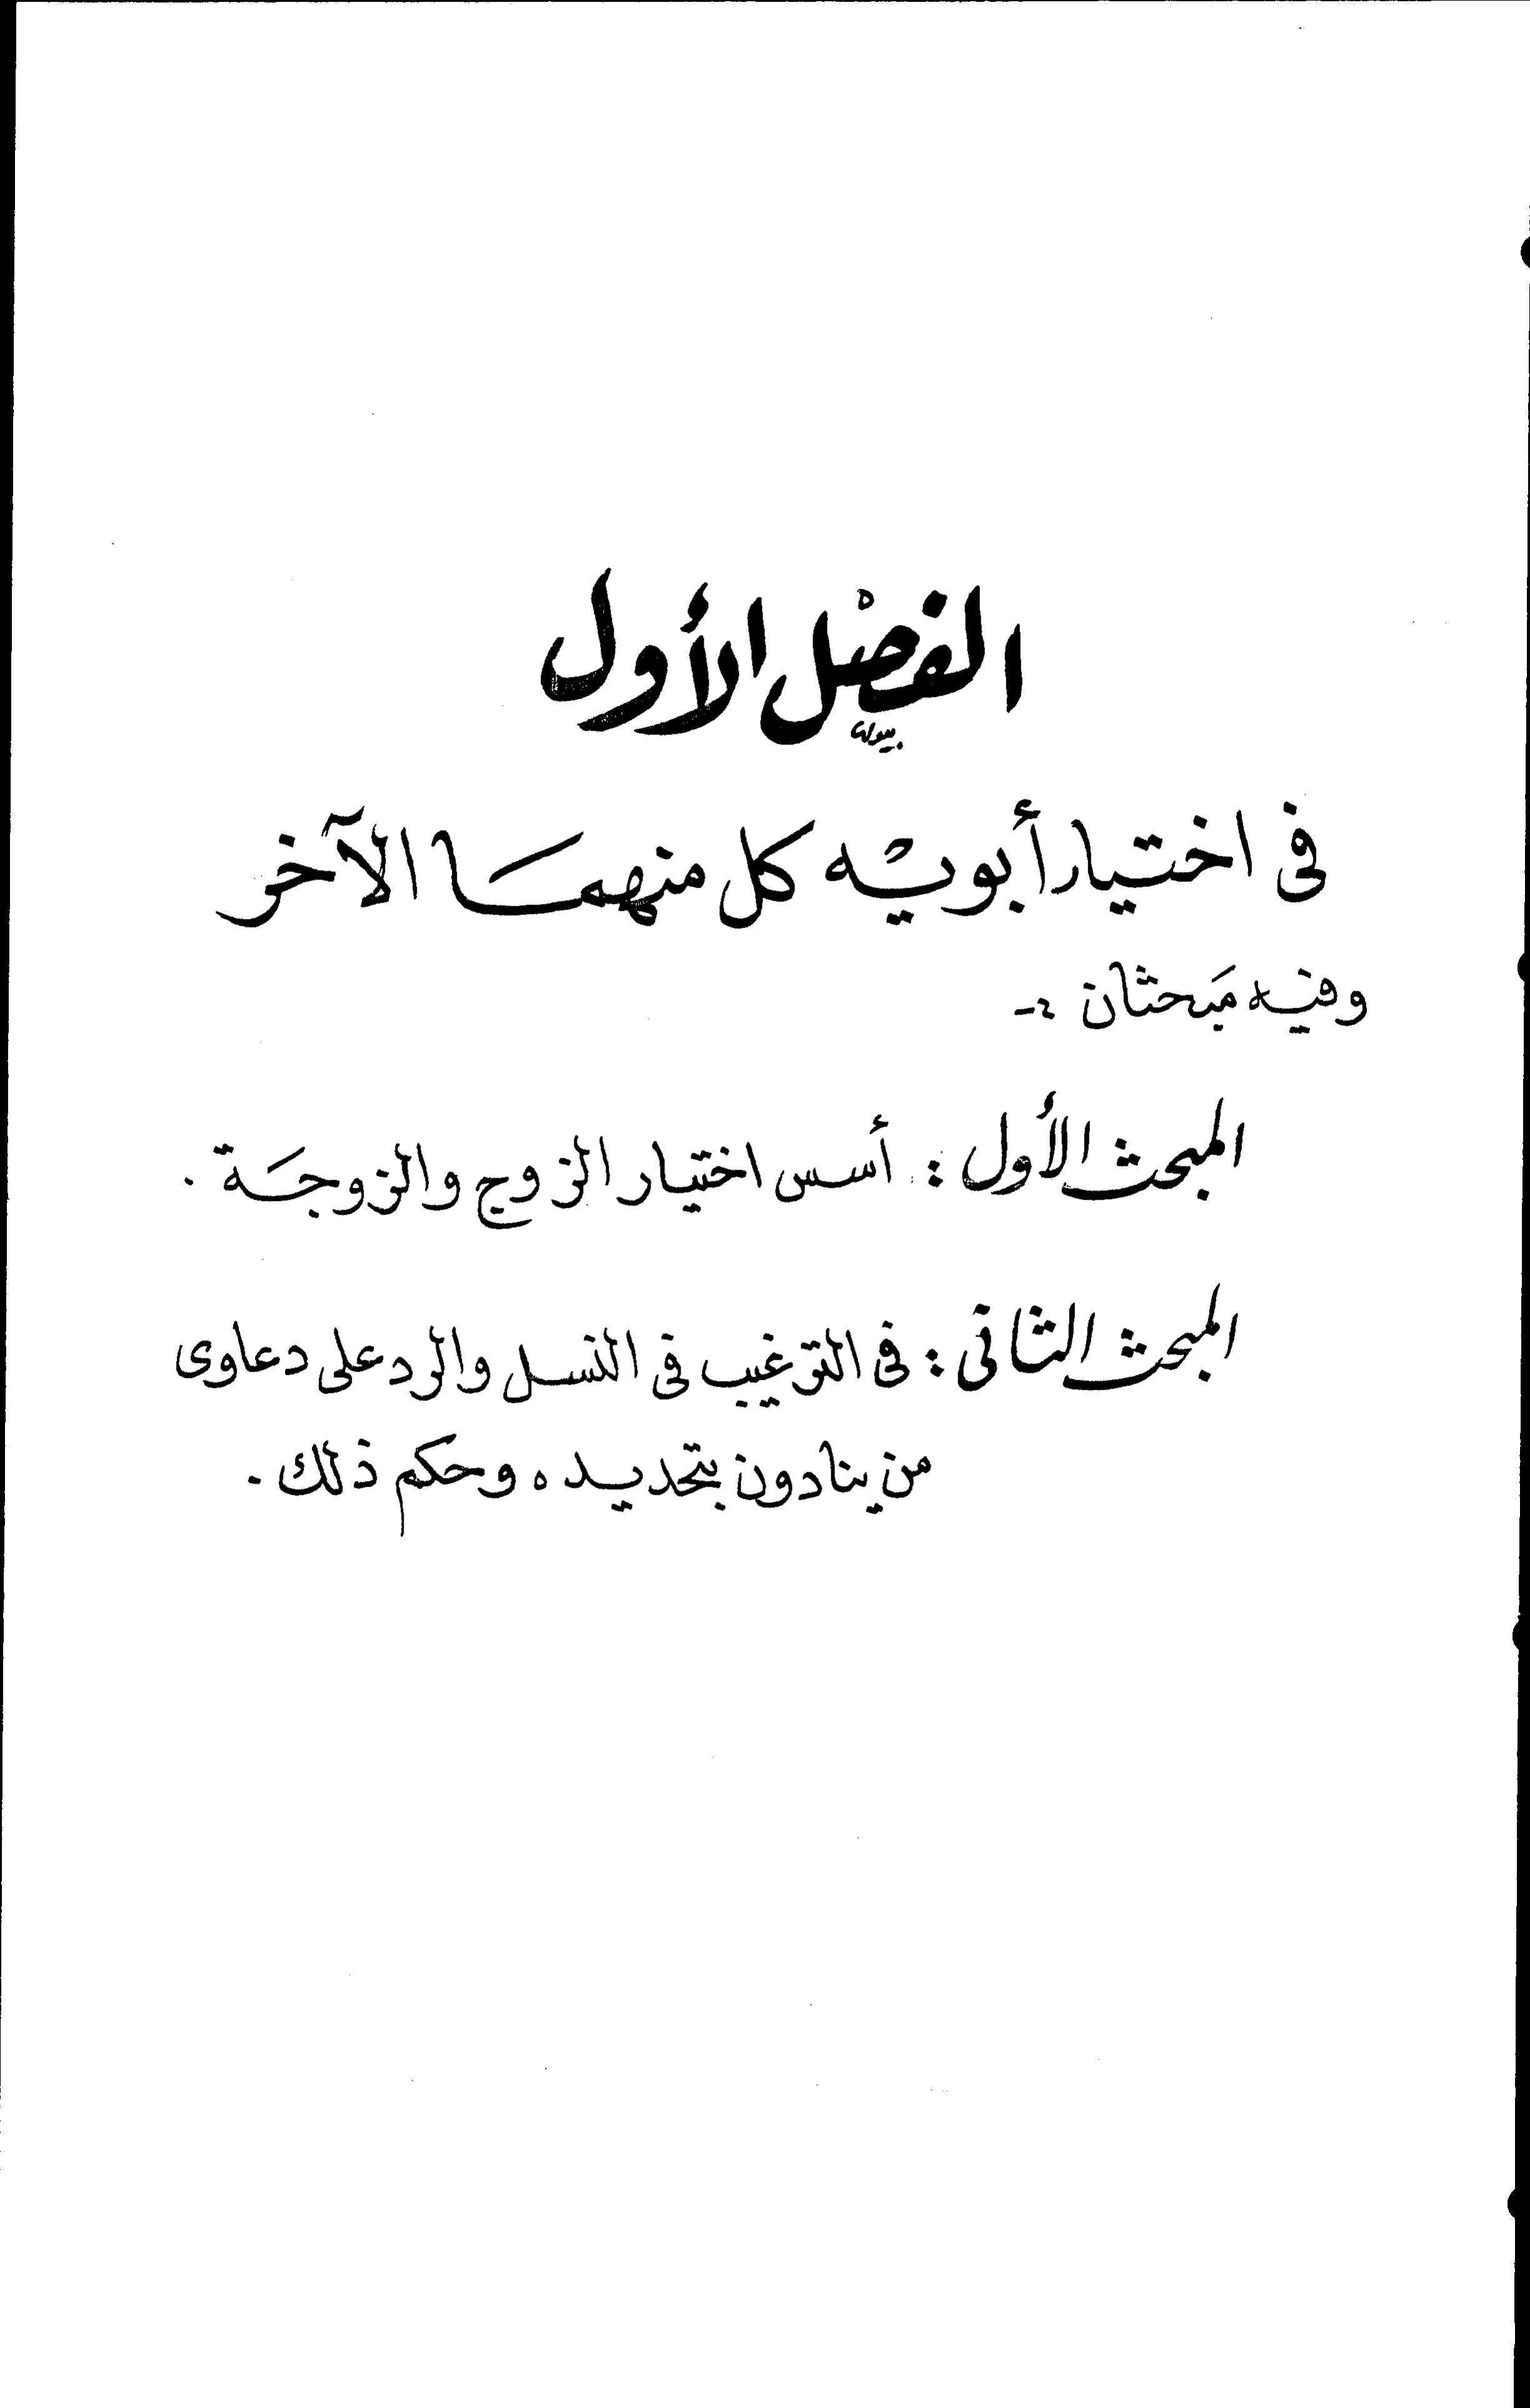 الفصْل الأول
في اختيار أبويْه كل منهمَا الآخر
وفيه مَبحثان :-
المبحث الأول : أسس اختيار الزوج والزوجَة .
المبحث الثاني : في الترغيب في النسل والرد على دعاوى
من ينادون بتحديده وحكم ذلك .